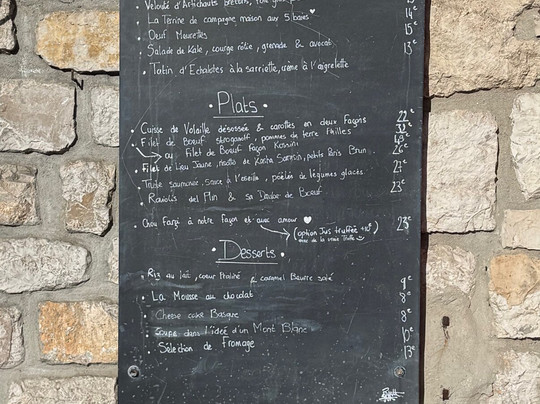 Velouté d'Artichauts Bretons, foie gras
La Terrine de campagne maison aux 5 baies 14€
Oeuf Meurettes 15€
Salade de Kale, courge rôtie, grenade & avocat 13€
Tatin d'Echalotes à la sarriette, crème à l'aigrelette
Plats
Cuisse de Volaille désossée & carottes en deux Façons 22€
Filet de Boeuf stroganoff, pommes de terre Pailles 32€
ou Filet de Boeuf façon Rossini 43€
Filet de Lieu Jaune, risotto de Kasha Sarrasin, petits Paris Brun 26€
Truite saumonée, sauce à l'oseille, poêlée de légumes glacés
Raviolis del Plin & sa Daube de Boeuf 23€
Chou Farçi à notre façon et avec amour 23€
(option Jus truffée +10€
avec de la vraie truffe)
Desserts
Riz au lait, coeur Praliné & caramel Beurre salé 9€
La Mousse au chocolat 8€
Cheese cake Basque 8€
Coupe dans l'idée d'un Mont Blanc 10€
Sélection de Fromage 13€